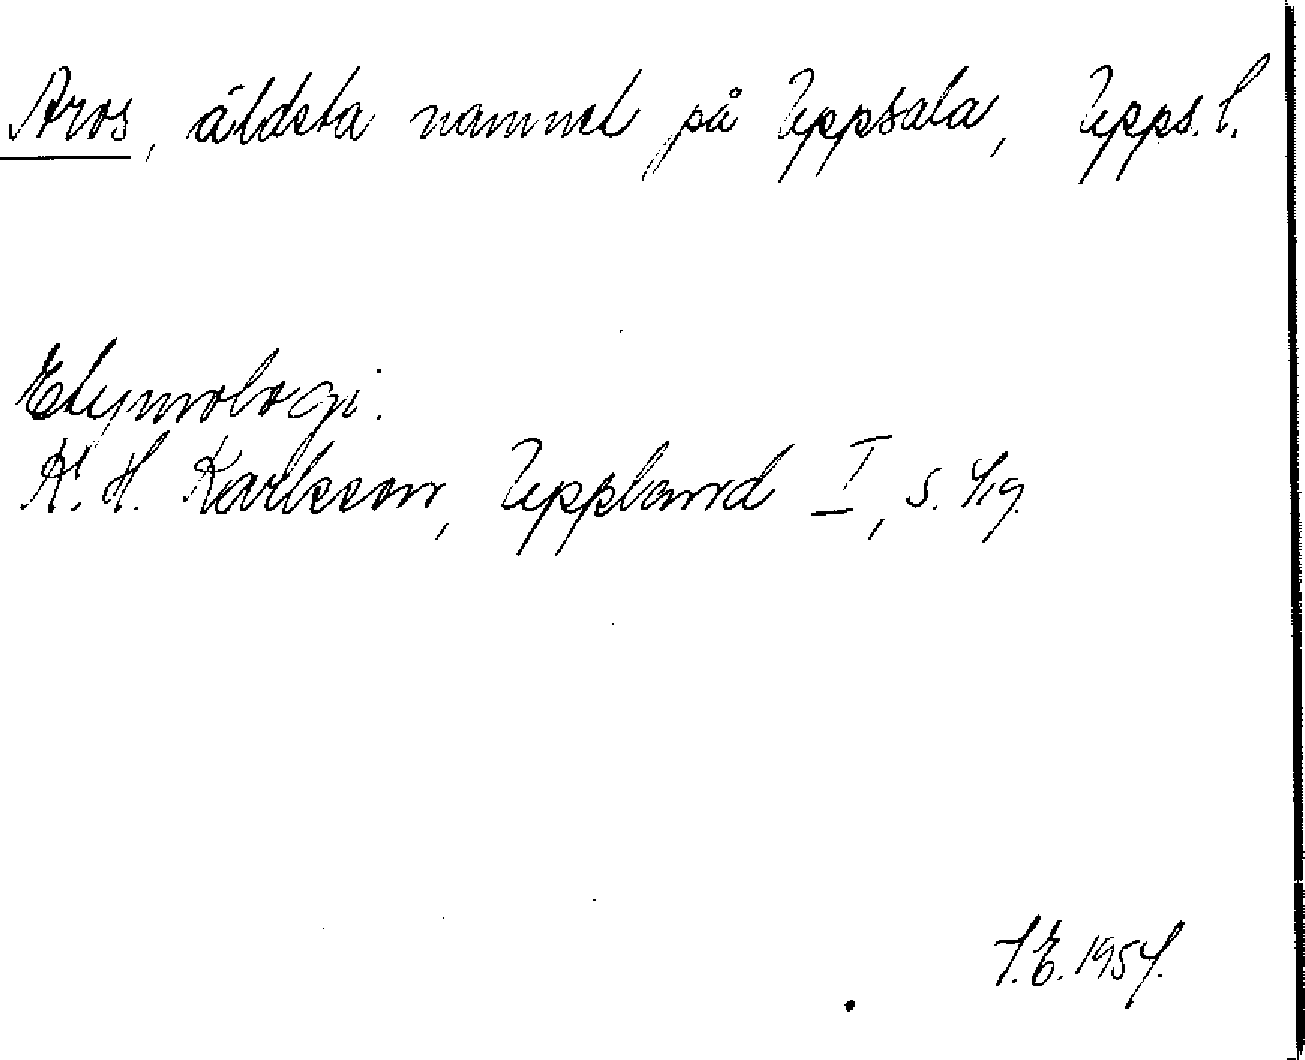 Aros, äldsta namnet på Uppsala, Upps. l.
Etymologi:
K. H. Karlsson, Uppland I, s. 419.
J.E. 1954.